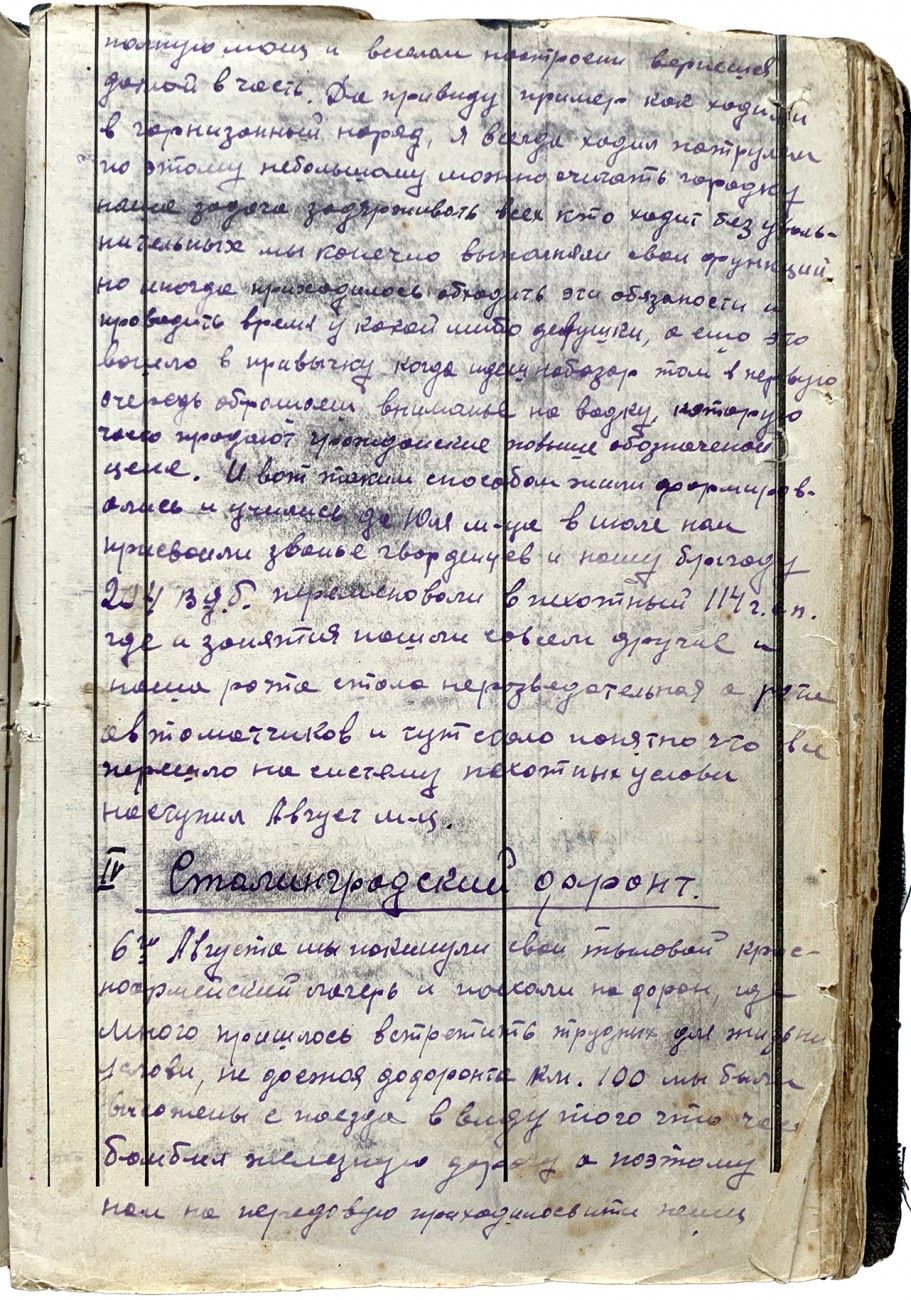 полную мощ и веселом настроени вернешся
домой в часть. Да приведу пример как ходили
в гарнизонный наряд, я всегда ходил патрулем
по этому небольшому можно считать городку
наша задача задерживать всех кто ходит без уволь-
нительных мы конечно выполняли свои функций
но иногда приходилось обходить эти обязаности и
проводить время у какой либо девушки, а ещо это
вошло в привычку когда идеш на базар там в первую
очередь оброшаеш вниманье на водку, которую
часто продают гражданские повыше обозначеной
цене. И вот таким способом жили формиров-
ались и учились до Юля м-ца в июле нам
присвоили званье гвардейцев и нашу бригаду
204 в.д.б. переименовали в пехотный 114 г.с.п.
где и занятия пошли совсем другие и
наша рота стала неразведательная а рота
автоматчиков и тут стало понятно что все
перешло на систему пехотных услови
наступил Август м-ц.
IV Сталинградский фронт.
6го Августа мы покинули свой тыловой крас-
ноармейский лагерь и поехали на фрон, где
много пришлось встретить трудных для жизни
услови, не доезжая дофронта км. 100 мы были
высожены с поезда ввиду того что
бомбил железную дорогу а поэтому
нам на передовую приходилось ити пешц